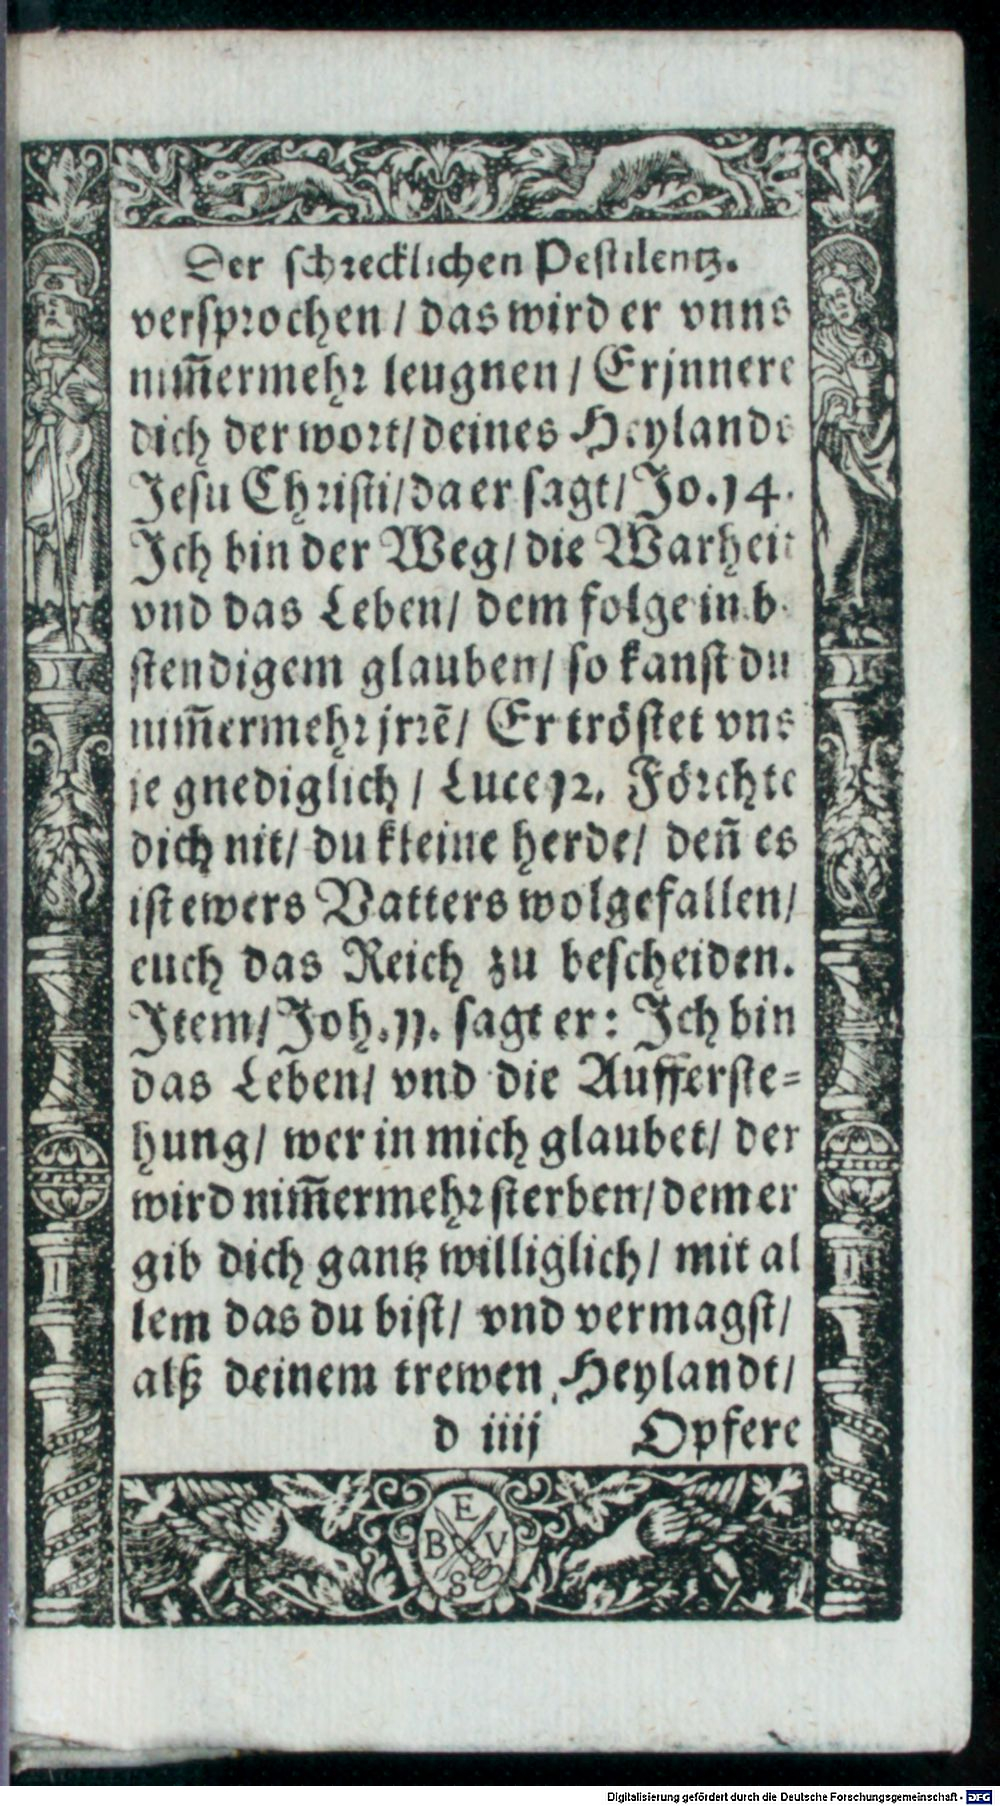 Der schrecklichen Pestilentz.
versprochen / das wird er vnns
nim̄ermehr leugnen / Erjnnere
dich der wort / deines Heylands
Jesu Christi / da er sagt / Jo. 14.
Ich bin der Weg / die Warheit
vnd das Leben / dem folge in b
stendigem glauben / so kanst du
nim̄ermehr jrrē / Er tröstet vns
je gnediglich / Luce 12. Förchte
dich nit / du kleine herde / den̄ es
ist ewers Vatters wolgefallen /
euch das Reich zu bescheiden.
Item / Joh. 11. sagt er: Ich bin
das Leben / vnd die Aufferste=
hung / wer in mich glaubet / der
wird nim̄ermehr sterben / dem er
gib dich gantz williglich / mit al
lem das du bist / vnd vermagst /
alß deinem trewen Heylandt /
d iiij Opfere
E
B V
S
Digitalisierung gefördert durch die Deutsche Forschungsgemeinschaft - DFG